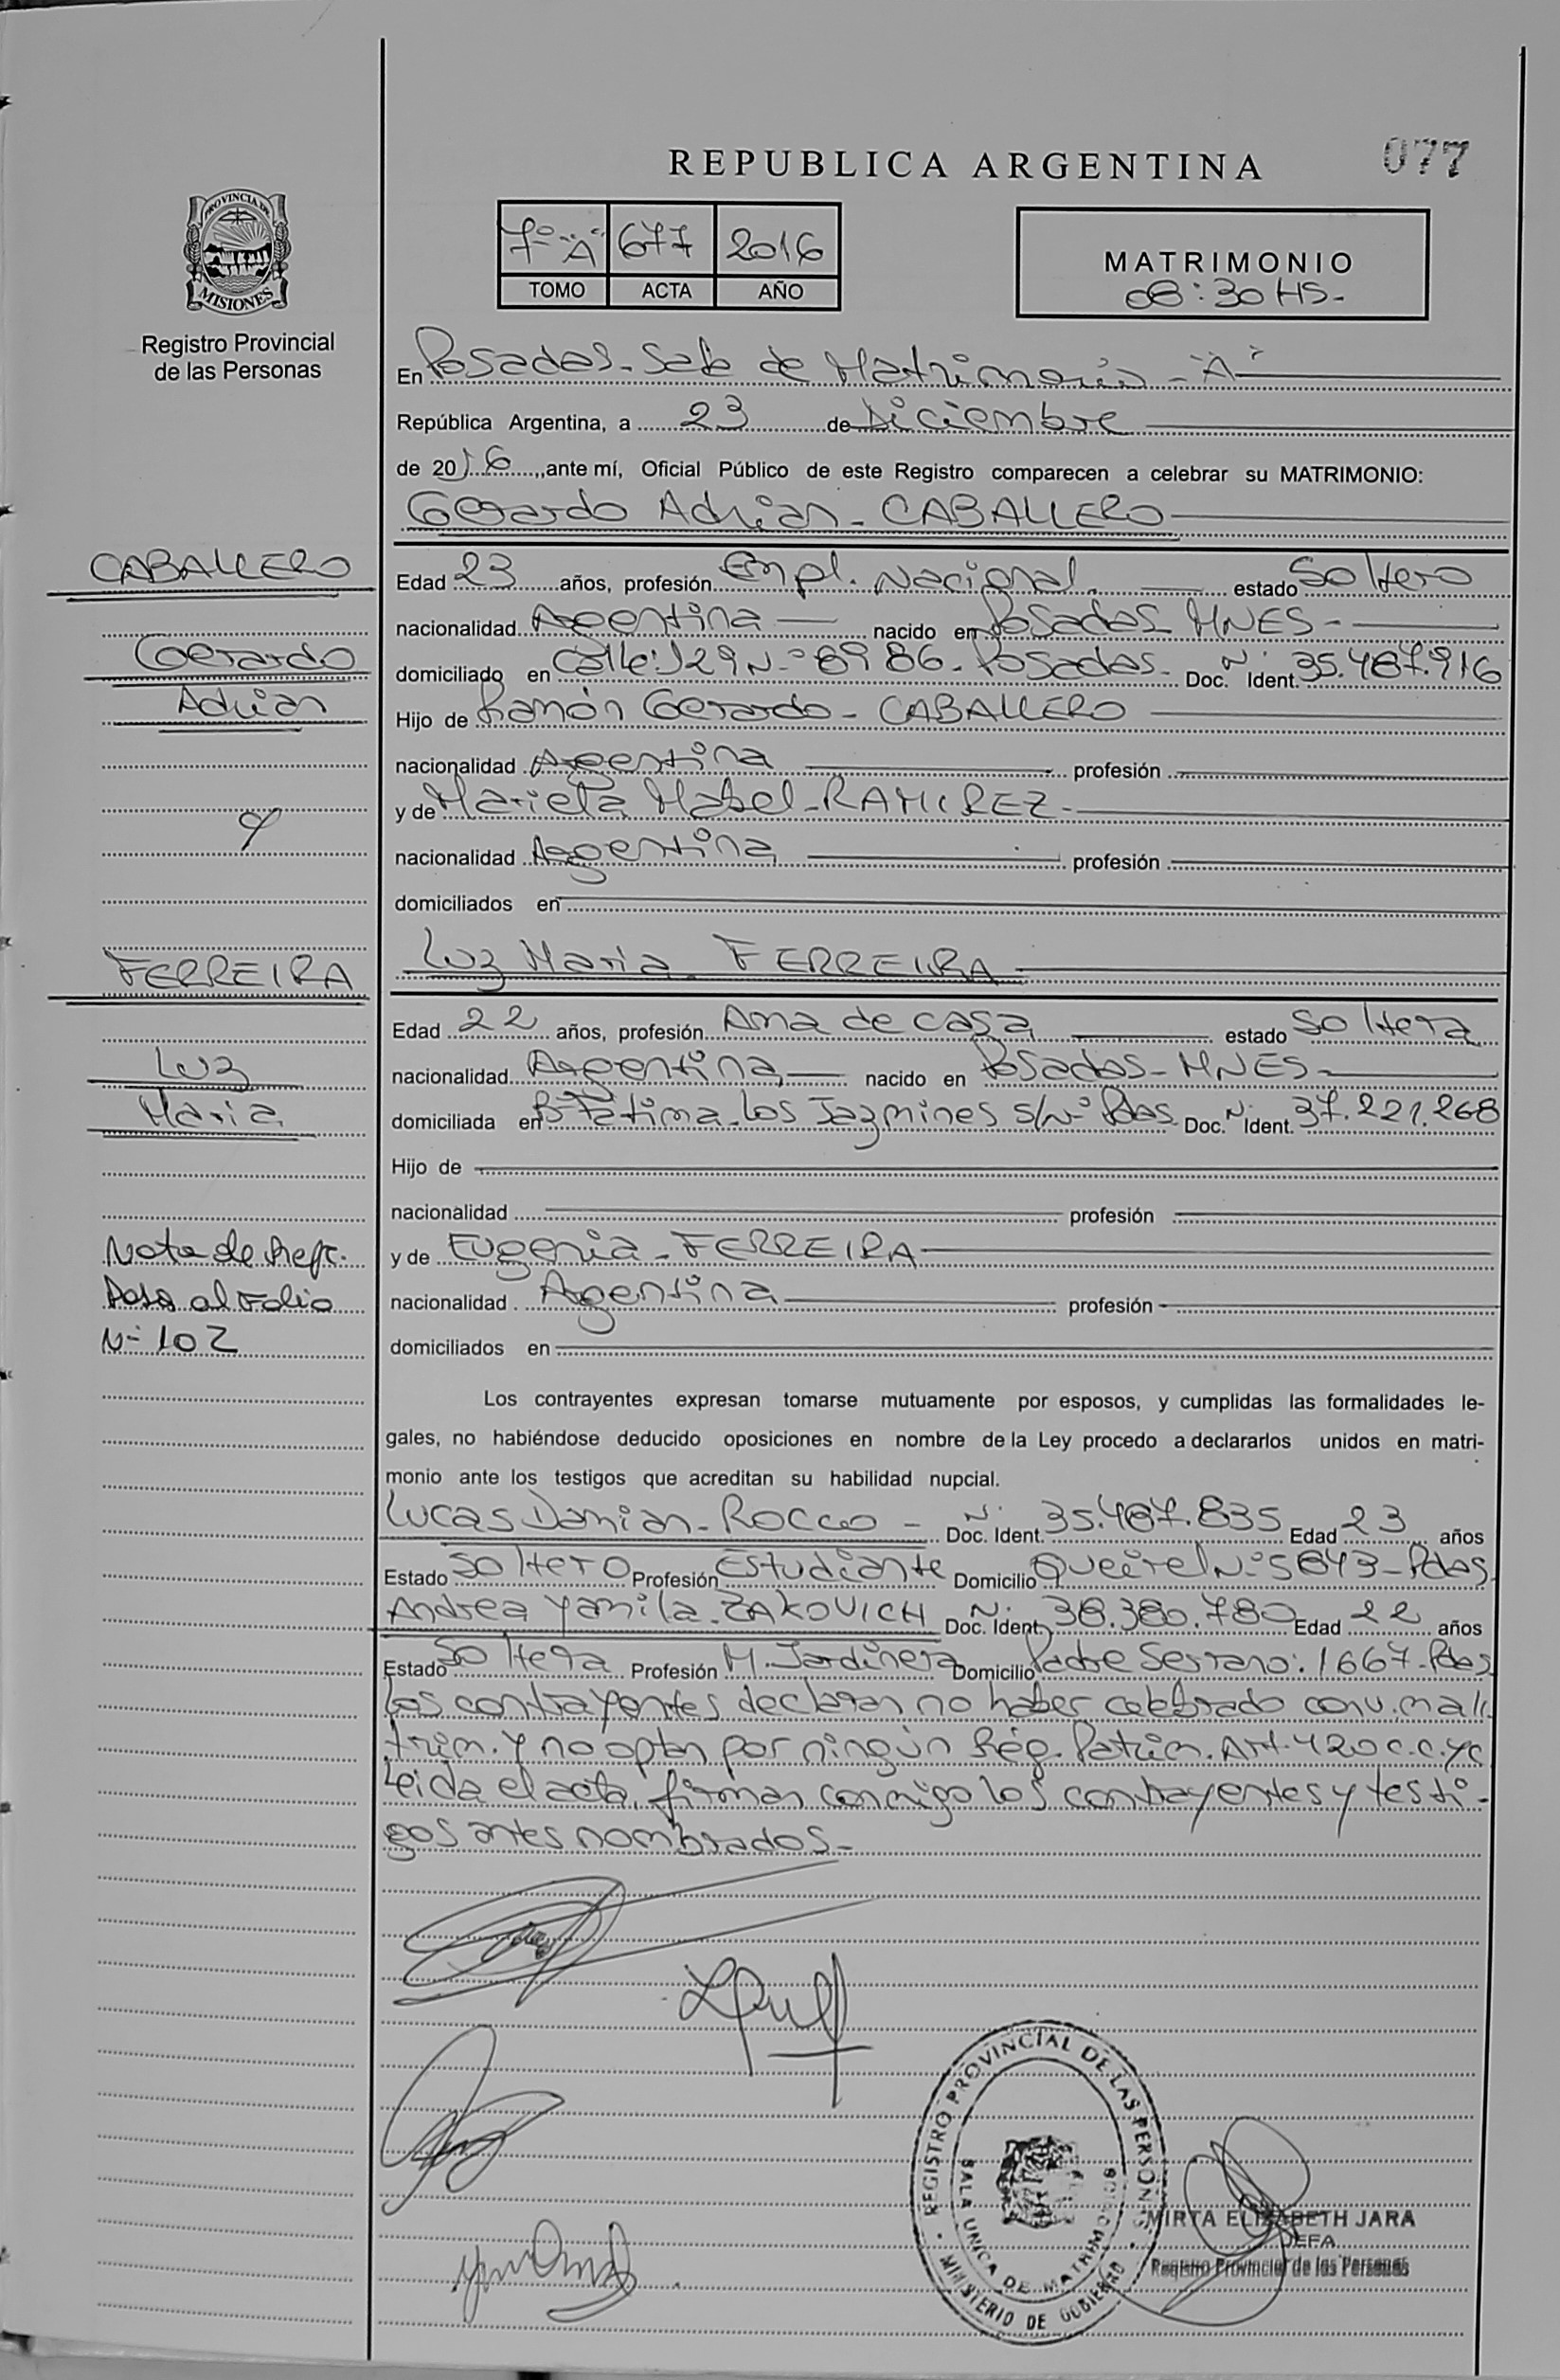 REPUBLICA ARGENTINA
077
7º "A" 677 2016
TOMO ACTA AÑO
MATRIMONIO
08:30 HS-
PROVINCIA DE
MISIONES
Registro Provincial
de las Personas
En Posadas - Sala de Matrimonios - "A"
República Argentina, a 23 de Diciembre
de 2016, ante mí, Oficial Público de este Registro comparecen a celebrar su MATRIMONIO:
Gerardo Adrian - CABALLERO
CABALLERO
Gerardo
Adrian
y
FERREIRA
Luz
Maria
Nota de Refe.
Pasa al Folio
Nº 102
Edad 23 años, profesión Empl. Nacional estado Soltero
nacionalidad Argentina nacido en Posadas MNES -
domiciliado en Calle: 129 Nº 8986 - Posadas - Doc. Nº Ident. 35.487.916
Hijo de Ramón Gerardo - CABALLERO
nacionalidad Argentina profesión
y de Marieta Mabel - RAMIREZ -
nacionalidad Argentina profesión
domiciliados en
Luz Maria - FERREIRA
Edad 22 años, profesión Ama de casa estado Soltera
nacionalidad Argentina nacido en Posadas - MNES -
domiciliada en Bº Fátima - Los Jazmines S/Nº Pdas - Doc. Nº Ident. 37.221.268
Hijo de
nacionalidad profesión
y de Eugenia - FERREIRA
nacionalidad Argentina profesión
domiciliados en
Los contrayentes expresan tomarse mutuamente por esposos, y cumplidas las formalidades le-
gales, no habiéndose deducido oposiciones en nombre de la Ley procedo a declararlos unidos en matri-
monio ante los testigos que acreditan su habilidad nupcial.
Lucas Damian - ROCCO - Doc. Nº Ident. 35.487.835 Edad 23 años
Estado Soltero Profesión Estudiante Domicilio Queirel Nº 5843 - Pdas
Andrea Yamila - ZAKOVICH Doc. Nº Ident. 38.380.780 Edad 22 años
Estado Soltera Profesión M. Jardinera Domicilio Padre Serrano: 1667 - Pdas
Los contrayentes declaran no haber celebrado conv. ma
trim. y no optan por ningún Rég. Patrim. Art. 420 C.C.yC
Leida el acta, firman conmigo los contrayentes y testi-
gos antes nombrados -
REGISTRO PROVINCIAL DE LAS PERSONAS
SALA UNICA DE MATRIMONIOS
MINISTERIO DE GOBIERNO
MIRTA ELIZABETH JARA
JEFA
Registro Provincial de las Personas